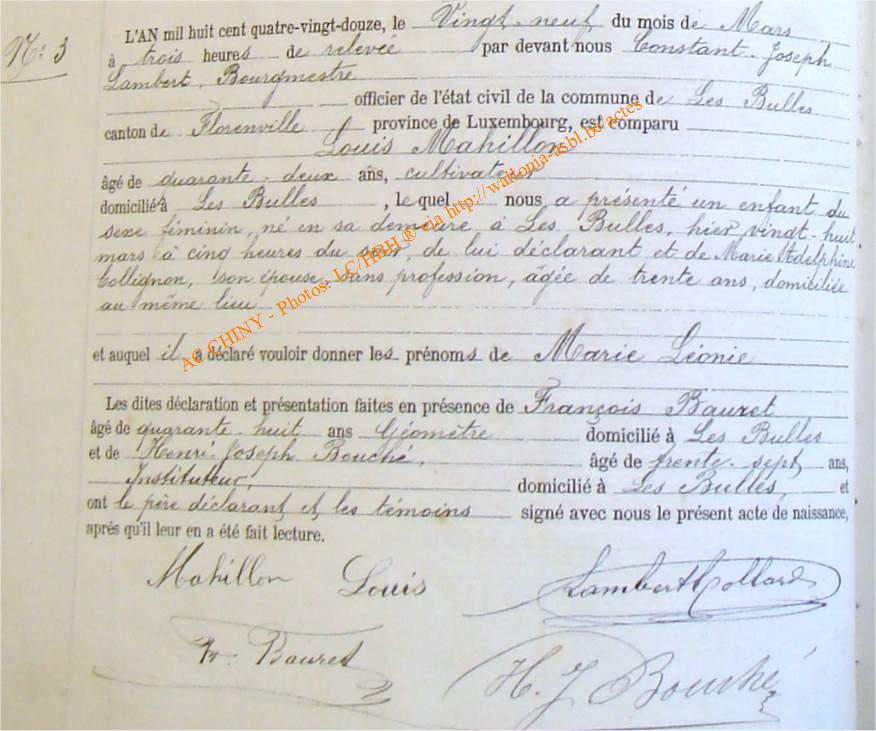 N: 3
L'AN mil huit cent quatre-vingt-douze, le Vingt-neuf du mois de Mars
à trois heures de relevée par devant nous Constant-Joseph
Lambert, Bourgmestre
officier de l'état civil de la commune de Les Bulles
canton de Florenville province de Luxembourg, est comparu
Louis Mahillon
âgé de quarante-deux ans, cultivateur
domicilié à Les Bulles, le quel nous a présenté un enfant du
sexe féminin, né en sa demeure à Les Bulles, hier vingt-huit
mars à cinq heures du soir, de lui déclarant et de Marie Adelphine
Collignon, son épouse, sans profession, âgée de trente ans, domiciliée
au même lieu
et auquel il a déclaré vouloir donner les prénoms de Marie Léonie
Les dites déclaration et présentation faites en présence de François Bauret
âgé de quarante-huit ans Géomètre domicilié à Les Bulles
et de Henri-Joseph Bouché, âgé de trente-sept ans,
Instituteur, domicilié à Les Bulles, et
ont le père déclarant et les témoins signé avec nous le présent acte de naissance,
après qu'il leur en a été fait lecture.
Mahillon Louis Lambert Collard
Fr. Bauret
H. J Bouché
AC CHINY - Photos: LC/HBH ® cia http://wallonia-asbl.be/actes